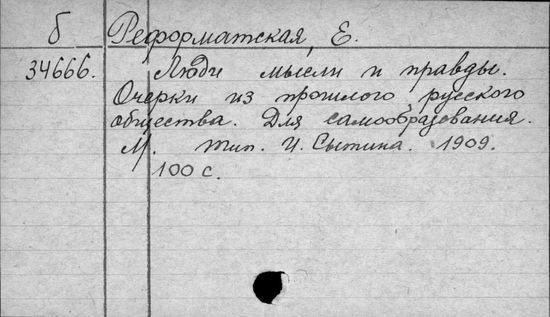 б Реформатская, Е.
34666. Люди мысли и правды.
Очерки из прошлого русского
общества. Для самообразования.
М. Тип. И. Сытина. 1909.
100 с.